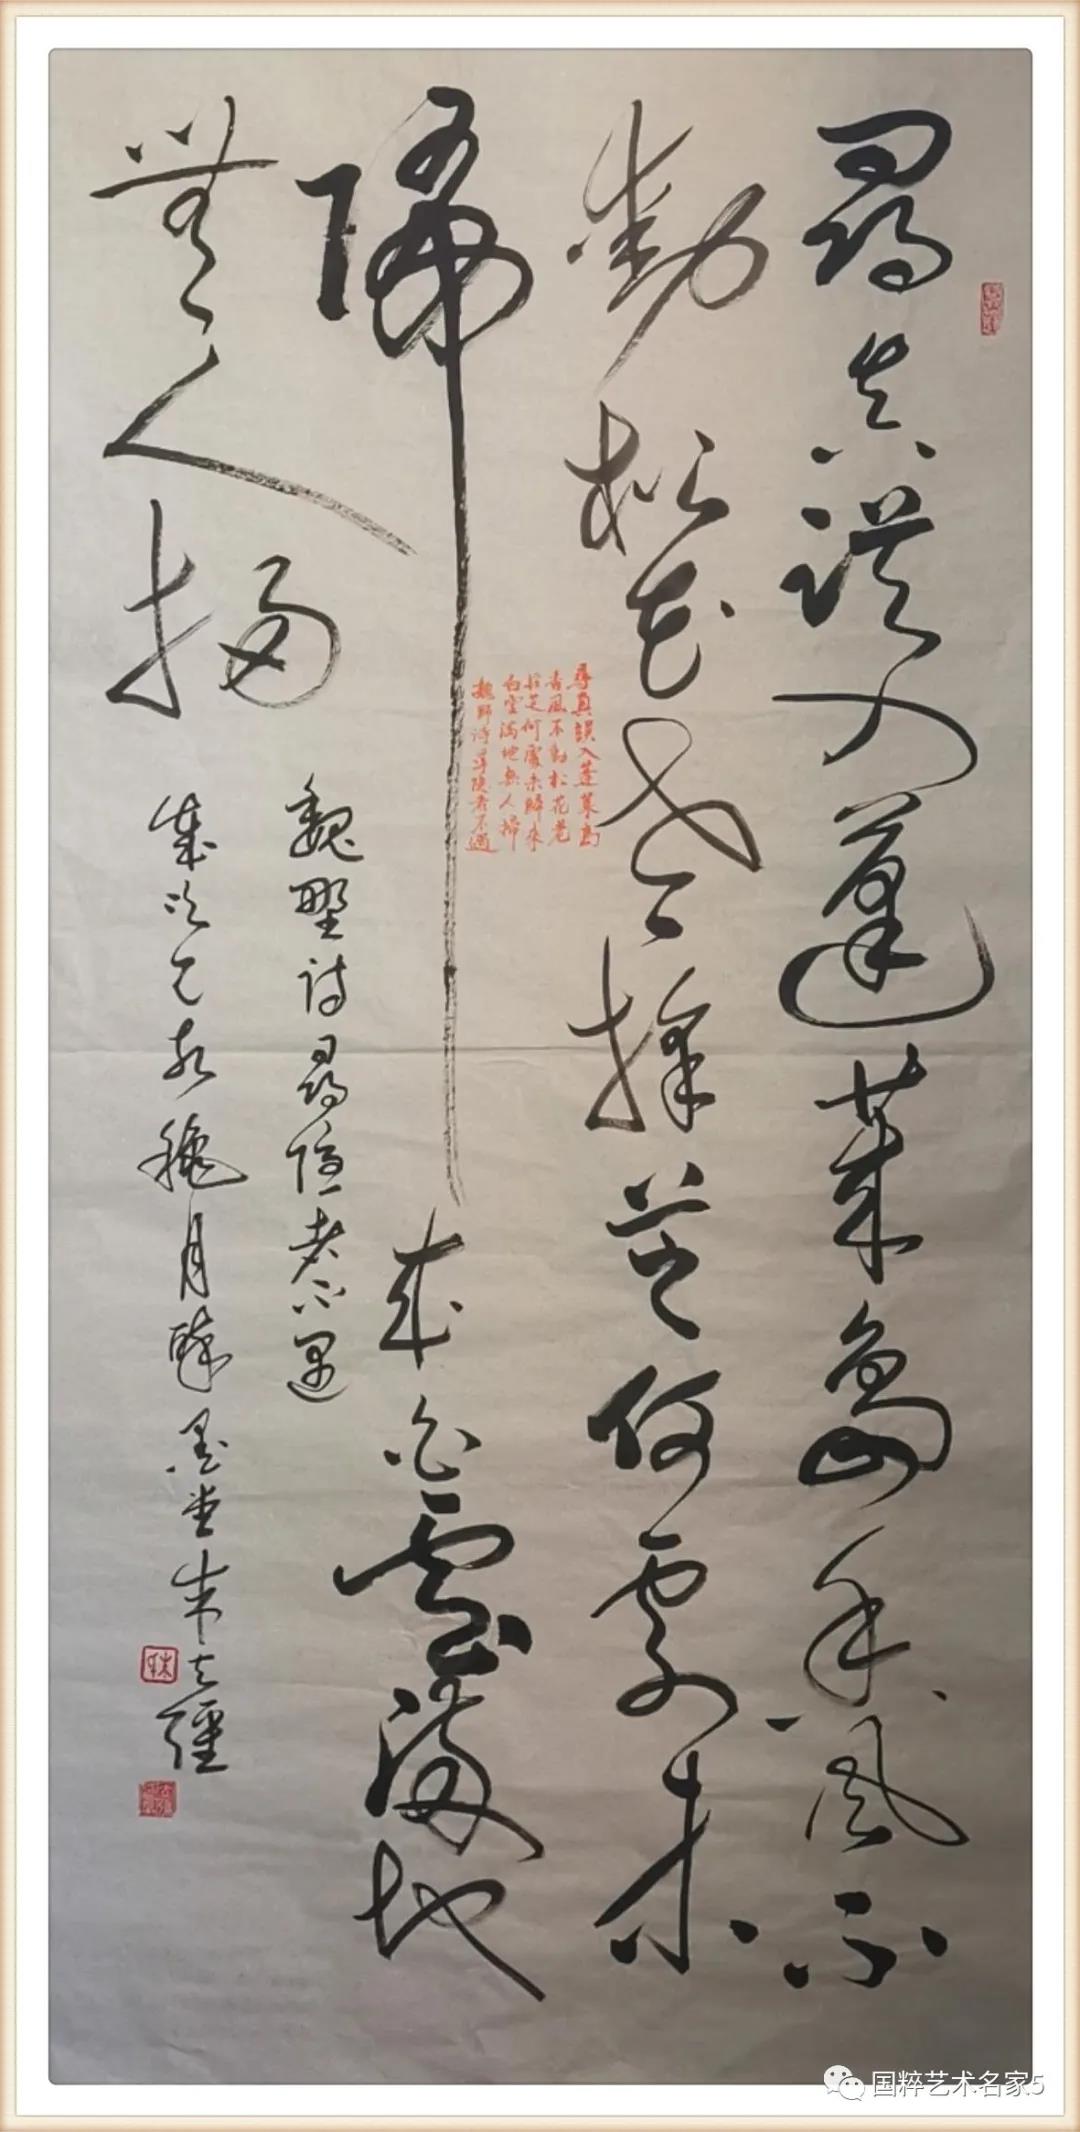 尋真誤入蓬萊島香風不
動松花老採芝何處未
歸來白雲滿地
無人掃
魏野诗尋隐者不遇
歲次己亥穐月醉墨堂朱
尋真誤入蓬萊島
香風不動松花老
採芝何處未歸來
白雲滿地無人掃
魏野诗尋隐者不遇
国粹艺术名家5